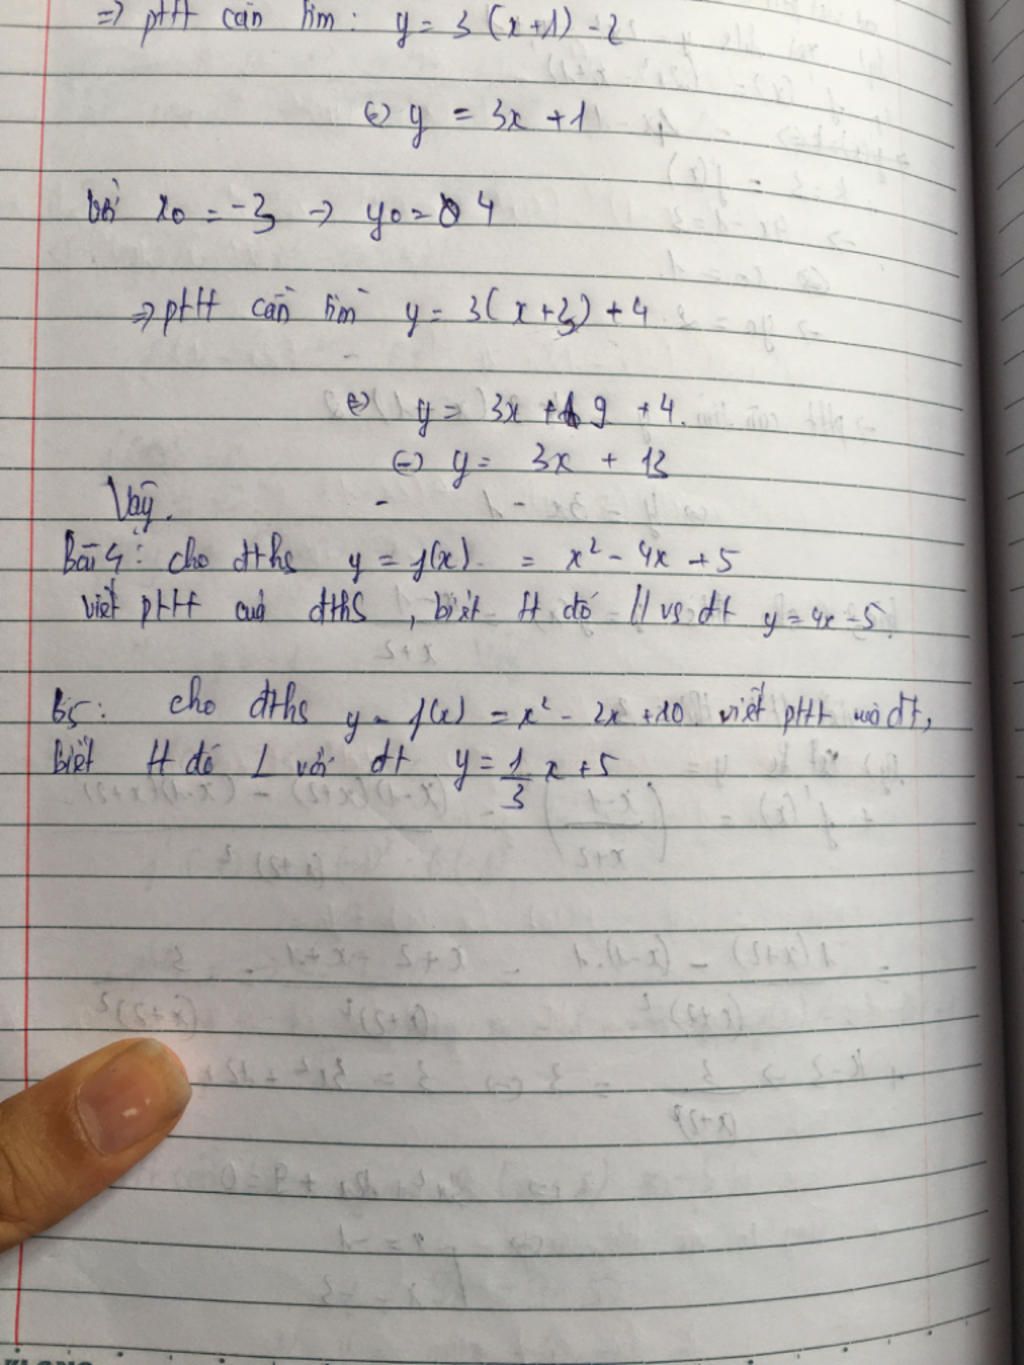 => pttt cần tìm: y = 3(x+1) - 2
<=> y = 3x + 1
Với x0 = -3 -> y0 = 4
=> pttt cần tìm y = 3(x+3) + 4
<=> y = 3x + 9 + 4.
<=> y = 3x + 13
Vậy.
Bài 4: cho đths y = f(x) = x² - 4x + 5
viết pttt của đths, biết tt đó // vs đt y = 4x - 5.
B5: cho đths y = f(x) = x² - 2x + 10 viết pttt của đt,
biết tt đó ⊥ với đt y = 1/3 x + 5